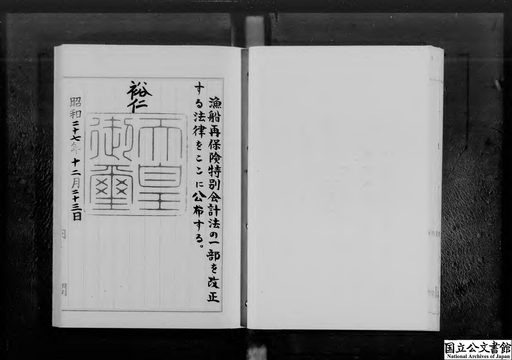 漁船再保険特別会計法の一部を改正
する法律をここに公布する。
裕仁
天皇
御璽
昭和二十七年十二月二十三日
国立公文書館
National Archives of Japan